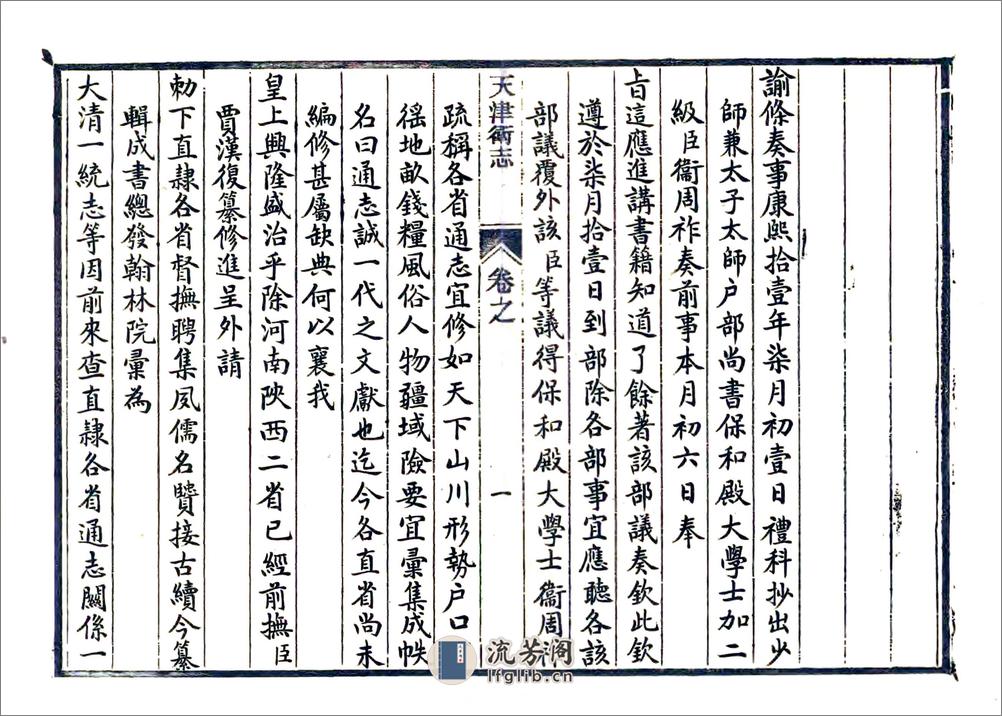 諭條奏事康熙拾壹年柒月初壹日禮科抄出少
師兼太子太師户部尚書保和殿大學士加二
級臣衞周祚奏前事本月初六日奉
㫖這應進講書籍知道了餘著該部議奏欽此欽
遵於柒月拾壹日到部除各部事宜應聽各該
部議覆外該臣等議得保和殿大學士衞周祚
天津衛志 卷之 一
疏稱各省通志宜修如天下山川形勢户口丁
徭地畝錢糧風俗人物疆域險要宜彙集成帙
名曰通志誠一代之文獻也迄今各直省尚未
編修甚屬缺典何以襄我
皇上興隆盛治乎除河南陝西二省已經前撫臣
賈漢復纂修進呈外請
勅下直隸各省督撫聘集夙儒名贒接古續今纂
輯成書總發翰林院彙為
大清一統志等因前來查直隸各省通志關係一
流芳阁
lfglib.cn